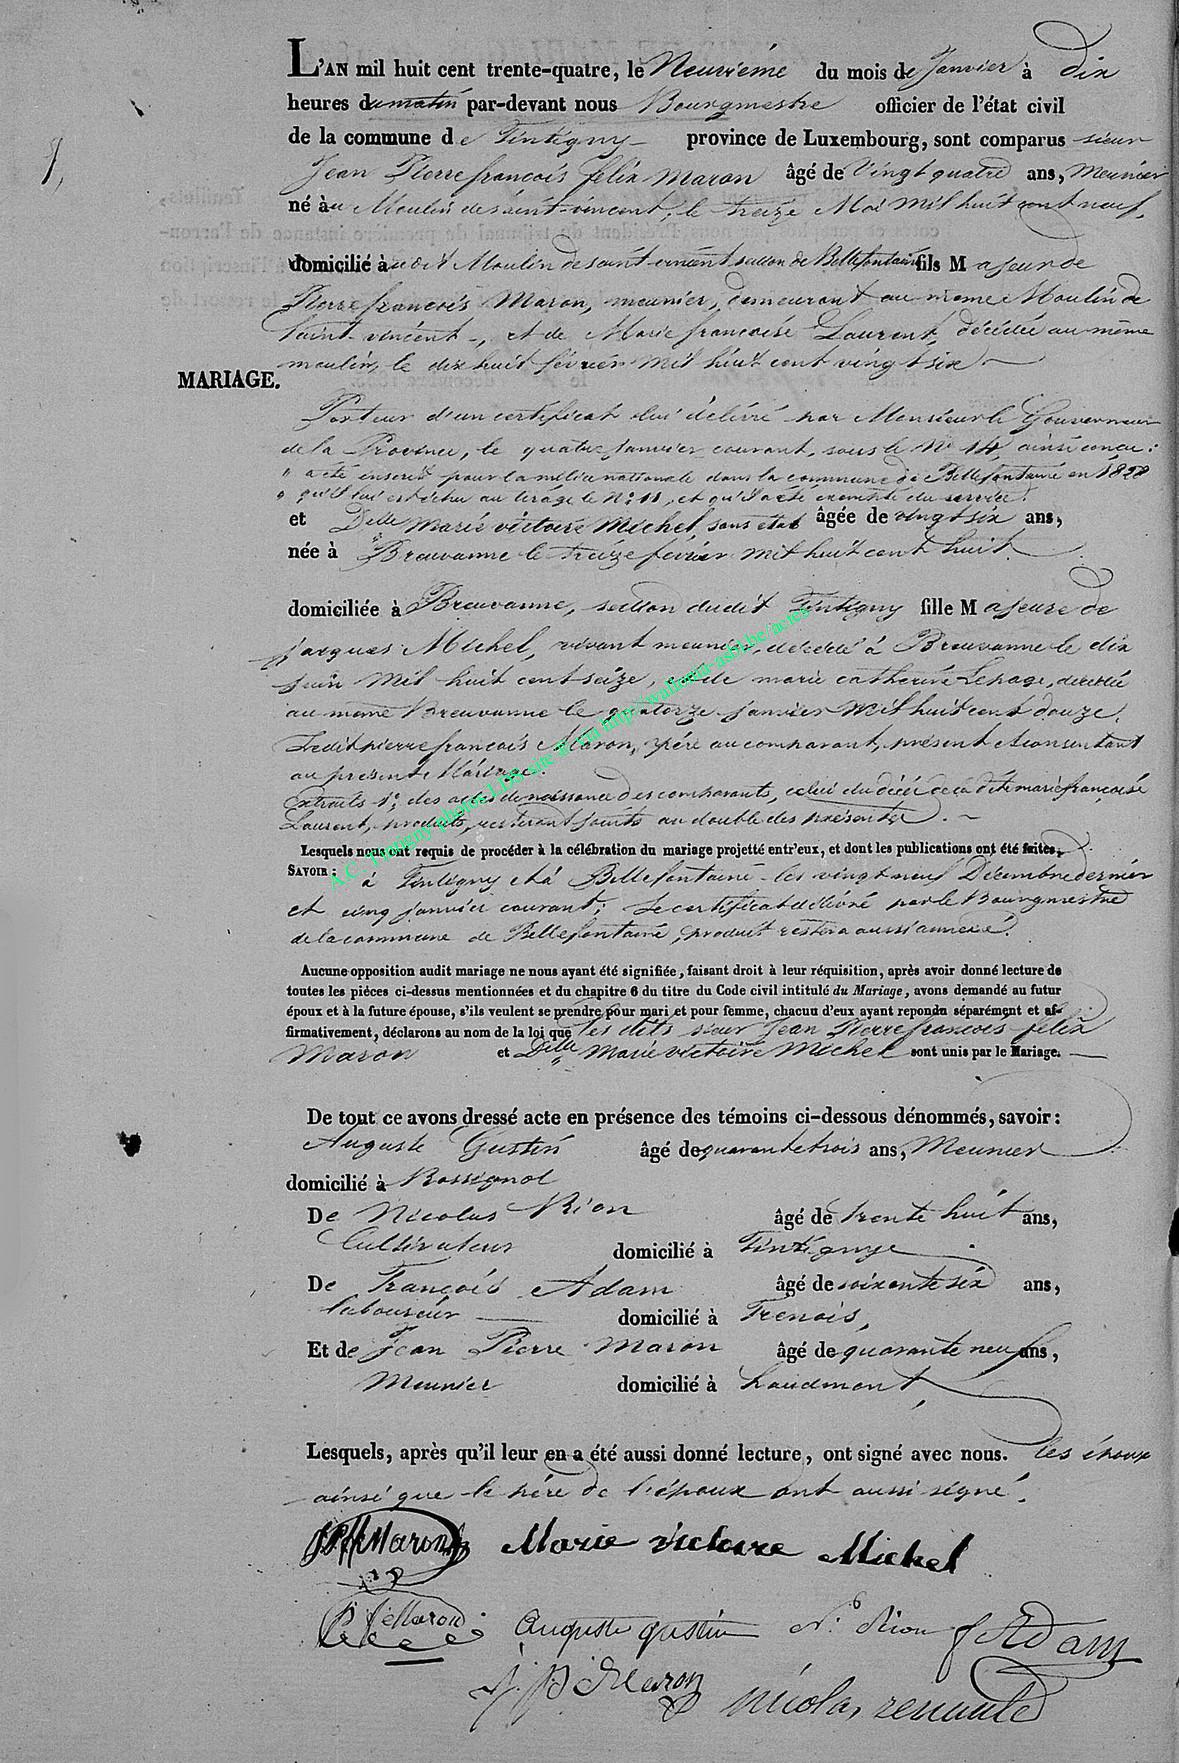 L'AN mil huit cent trente-quatre, le Neuvième du mois de Janvier à dix
heures du matin par-devant nous Bourgmestre officier de l'état civil
de la commune de Tintigny province de Luxembourg, sont comparus sieur
1,
Jean Pierre françois felix Maron âgé de Vingt quatre ans, Meunier
né à au Moulin de saint-vincent, le treize Mai Mil huit cent neuf,
domicilié à audit Moulin de saint vincent section de Bellefontaine fils Majeur de
Pierre françois Maron, meunier, demeurant au même Moulin de
Saint vincent, et de Marie françoise Laurent, décédée au même
moulin, le dix huit février Mil huit cent vingt six
MARIAGE.
Porteur d'un certificat lui délivré par Monsieur le Gouverneur
de la Province, le quatre janvier courant, sous le N° 14, ainsi conçu :
" a été inscrit pour la milice nationale dans la commune de Bellefontaine en 1828
" qu'il lui est échu au tirage le N°: 11, et qu'il a été exempté du service.
et Delle marie victoire Michel, sans etat âgée de vingt six ans,
née à Breuvanne le treize février Mil huit cent huit
domiciliée à Breuvanne, section dudit Tintigny fille Majeure de
jacques Michel, vivant meunier, décédé à Breuvanne le dix
juin Mil huit cent seize, et de marie catherine Lepage, décédée
au même Breuvanne le quatorze janvier Mil huit cent douze,
Ledit pierre françois Maron, père au comparant, présent & consentant
au présent Mariage.
Extraits 1°: des actes de naissance des comparants, celui du décès de la dite marie françoise
Laurent, produits, resteront joints au double des présentes.
Lesquels nous ont requis de procéder à la célébration du mariage projetté entr'eux, et dont les publications ont été faites,
SAVOIR : à Tintigny et à Bellefontaine les vingt neuf Décembre dernier
et cinq janvier courant; Le certificat délivré par le Bourgmestre
de la commune de Bellefontaine, produit restera aussi annexé.
Aucune opposition audit mariage ne nous ayant été signifiée, faisant droit à leur réquisition, après avoir donné lecture de
toutes les pièces ci-dessus mentionnées et du chapitre 6 du titre du Code civil intitulé du Mariage, avons demandé au futur
époux et à la future épouse, s'ils veulent se prendre pour mari et pour femme, chacun d'eux ayant repondu séparément et af-
firmativement, déclarons au nom de la loi que les dits sieur Jean Pierre françois felix
Maron et Delle Marie victoire Michel sont unis par le Mariage.
De tout ce avons dressé acte en présence des témoins ci-dessous dénommés, savoir :
Auguste Gustin âgé de quarante trois ans, Meunier
domicilié à Rossignol
De Nicolas Rion âgé de trente huit ans,
Cultivateur domicilié à Tintigny
De François Adam âgé de soixante six ans,
laboureur domicilié à Frenois,
Et de Jean Pierre Maron âgé de quarante neuf ans,
Meunier domicilié à haudmont,
Lesquels, après qu'il leur en a été aussi donné lecture, ont signé avec nous. Les époux
ainsi que le père de l'époux ont aussi signé.
Maron Marie victoire Michel
Maron auguste gustin N: Rion f Adam
J. P. Maron nicolas renauld
A.C. Tintigny photos LDS site & via http://wallonia-asbl.be/actes